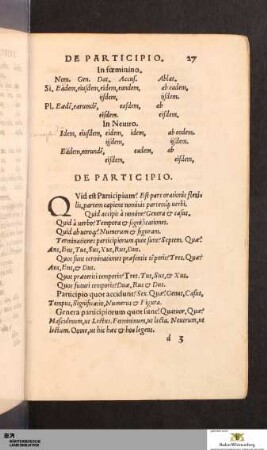 DE PARTICIPIO. 27
In fœminino.
Nom. Gen. Dat. Accus. Ablat.
Si. Eadem, eiusdem, eidem, eandem, ab eadem,
eisdem, eisdem.
Pl. Eædē, earundē, easdem, ab
eisdem, eisdem.
In Neutro.
Idem, eiusdem, eidem, idem, ab eodem.
eisdem, eisdem.
Eadem, eorundē, eadem, ab
eisdem, eisdem.
DE PARTICIPIO.
QVid est Participium? Est pars orationis flexi-
lis, partem capiens nominis partemq; verbi.
Quid accipit à nomine? Genera & casus,
Quid à verbo? Tempora & significationes.
Quid ab utroq;? Numerum & figuram.
Terminationes participiorum quot sunt? Septem. Quæ?
Ans, Ens, Tus, Sus, Xus, Rus, Dus.
Quot sunt terminationes præsentis tēporis? Tres. Quæ?
Ans, Ens, & Dus.
Quot præteriti temporis? Tres. Tus, Sus, & Xus.
Quot futuri temporis? Duæ, Rus & Dus.
Participio quot accidunt? Sex. Quæ? Genus, Casus,
Tempus, Significatio, Numerus & Figura.
Genera participiorum quot sunt? Quatuor, Quæ?
Masculinum, ut Lectus. Fœmininum, ut lecta. Neutrum, ut
lectum. Omne, ut hic hæc & hoc legens.
d 3
Baden-Württemberg